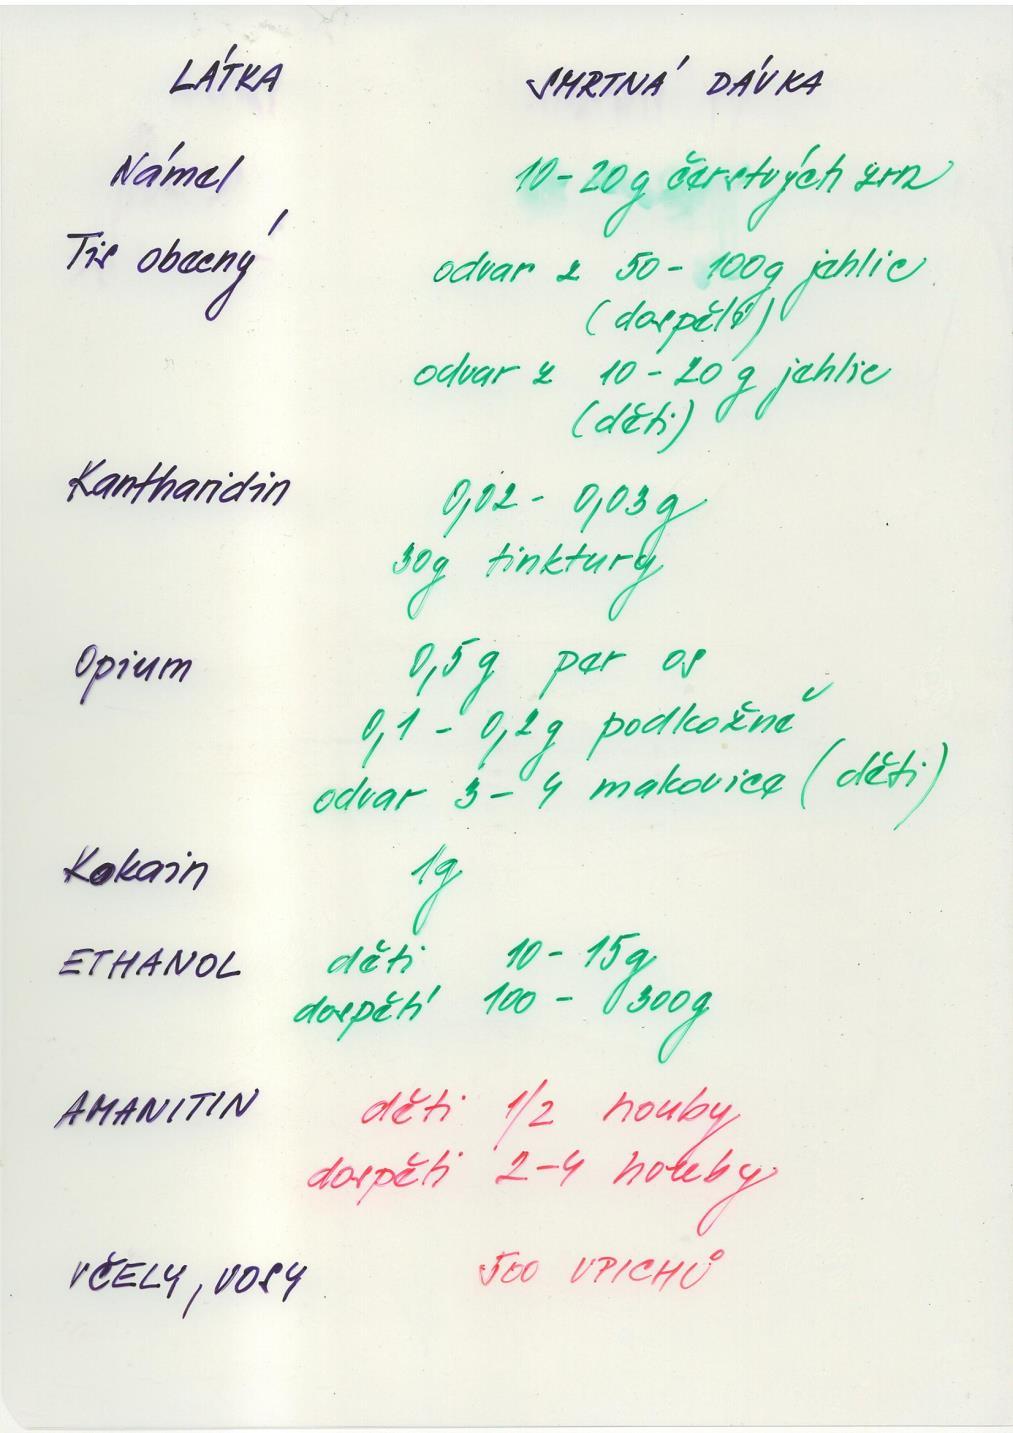 LÁTKA SMRTNÁ DÁVKA
Námel 10-20g čerstvých zrn
Tis obecný odvar z 50-100g jehlic
(dospělí)
odvar z 10-20g jehlic
(děti)
Kantharidin 0,02-0,03g
30g tinktury
Opium 0,5g per os
0,1-0,2g podkožně
odvar 3-4 makovice (děti)
Kokain 1g
ETHANOL děti 10-15g
dospělí 100-300g
AMANITIN děti 1/2 houby
dospělí 2-4 houby
VČELY, VOSY 500 VPICHŮ